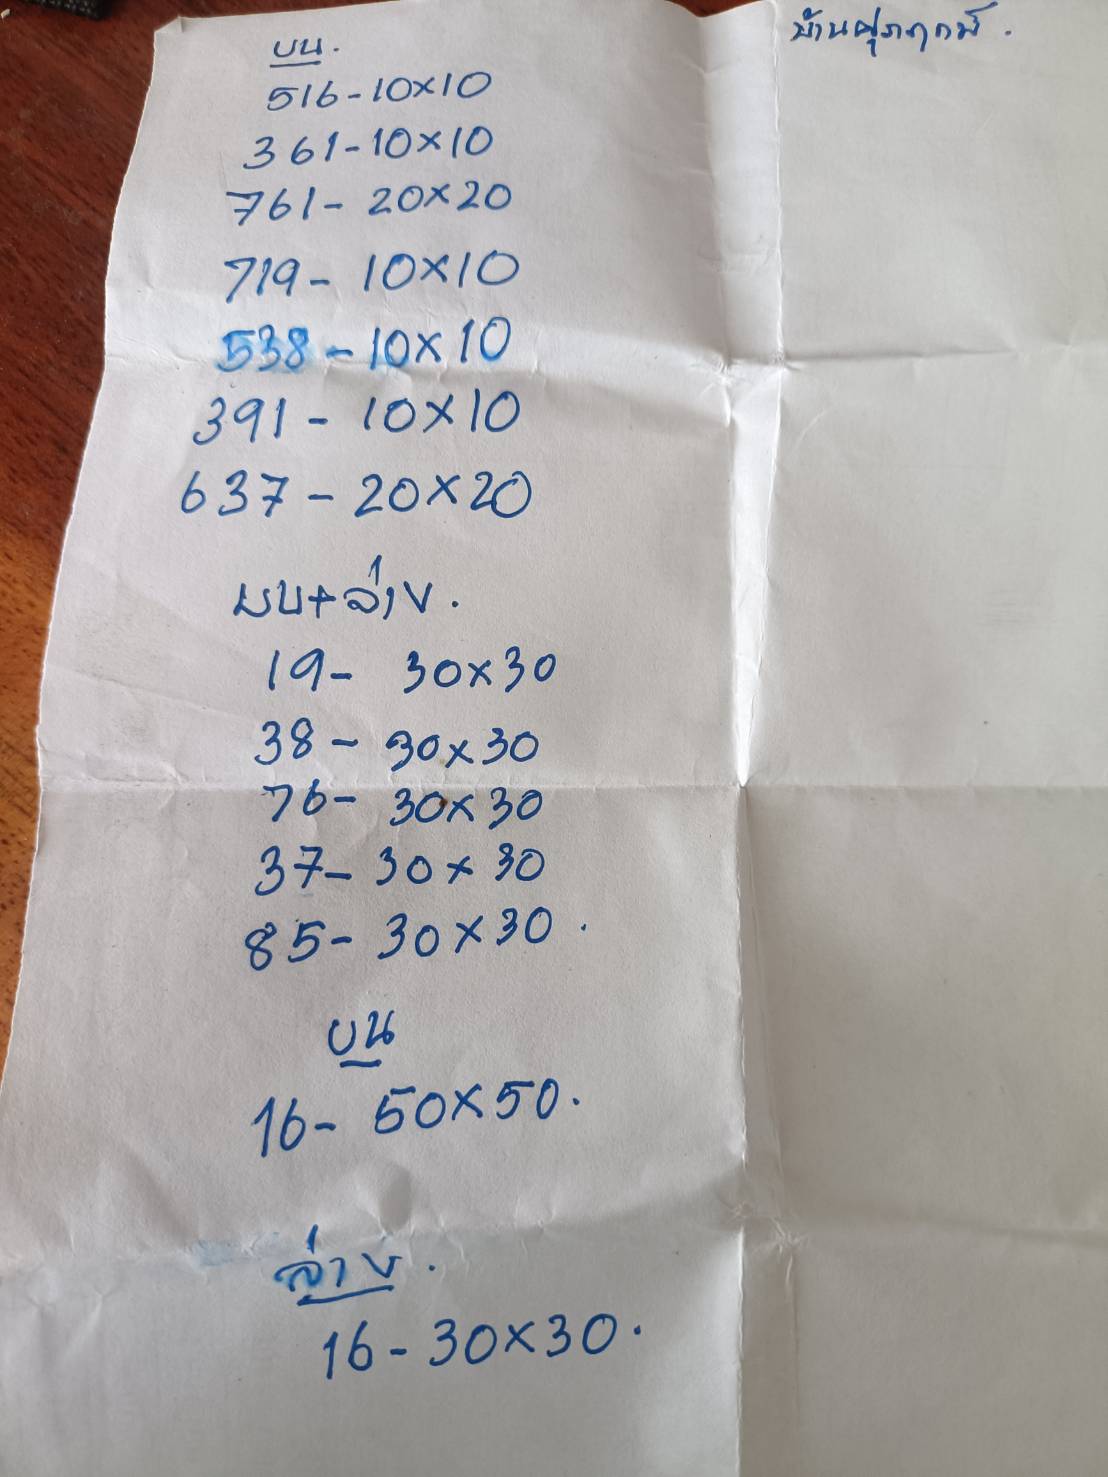 บ้านศุภฤกษ์.
บน.
516-10×10
361-10×10
761-20×20
719-10×10
538-10×10
391-10×10
637-20×20
บน+ล่าง.
19-30×30
38-30×30
76-30×30
37-30×30
85-30×30.
บน
16-50×50.
ล่าง.
16-30×30.